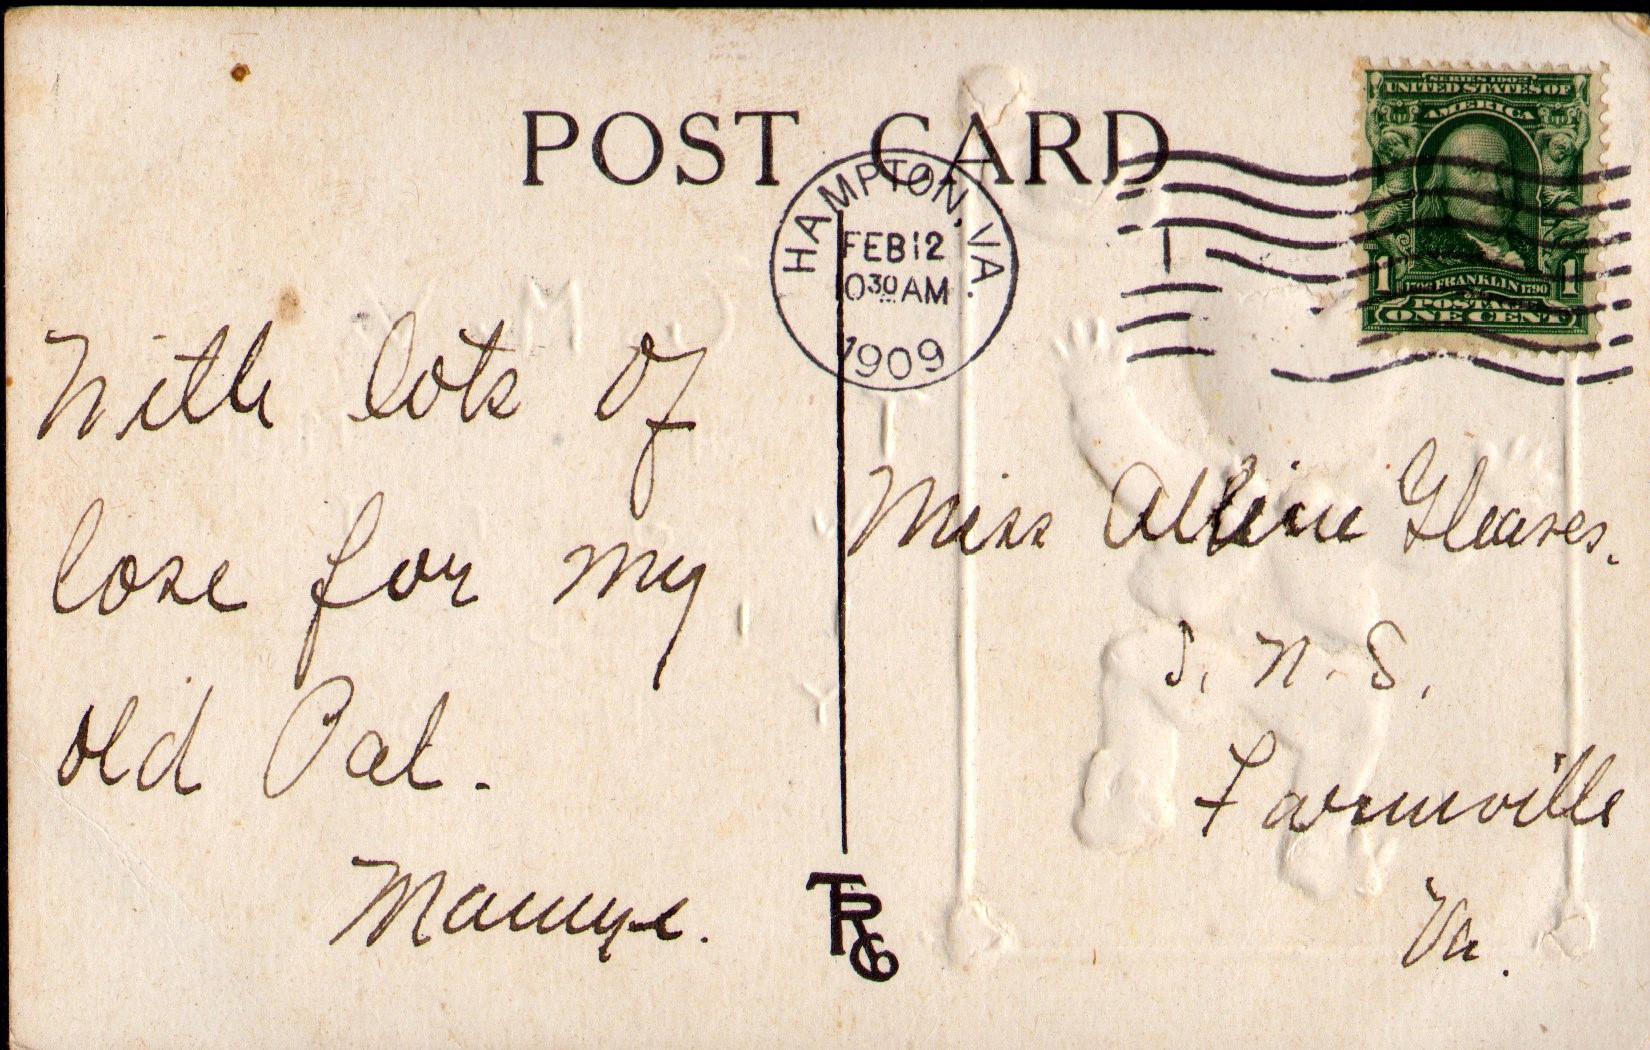 POST CARD
HAMPTON, VA.
FEB 12
1030 AM
1909
SERIES 1902
UNITED STATES OF
AMERICA
FRANKLIN 1790
1 1
POSTAGE
ONE CENT
With lots of
love for my
old Pal.
Mamye.
Miss Alline Gleaves.
S. N. S.
Farmville
Va.